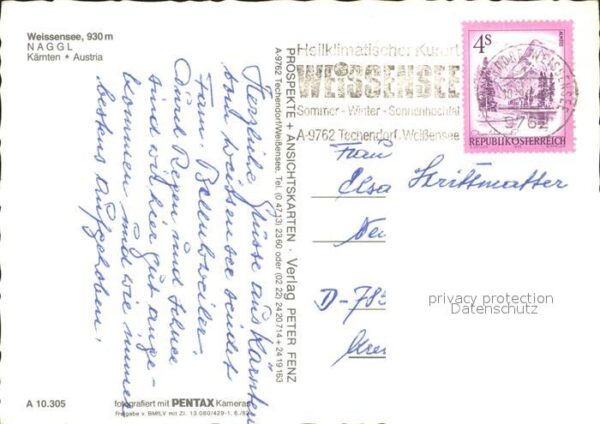 Weissensee, 930 m
NAGGL
Kärnten + Austria
Herzliche Grüsse aus Kärnten
vom Weissensee sendet
Fam. Ballweiler.
Durch Regen und Schnee
sind wir hier gut ange-
kommen und wie immer
bestens aufgehoben.
PROSPEKTE + ANSICHTSKARTEN · Verlag PETER FENZ
A-9762 Techendorf/Weißensee, Tel. (0 47 13) 23 60 oder (02 22) 24 20 714 + 24 19 163
Heilklimatischer Kurort
WEISSENSEE
Sommer - Winter - Sonnenhochtal
A-9762 Techendorf-Weißensee
4S
ALMSEE
9762
REPUBLIK ÖSTERREICH
Frau
Elsa Strittmatter
D-783
privacy protection
Datenschutz
A 10.305
fotografiert mit PENTAX Kameras
Freigabe v. BMfLV mit Zl. 13 080/429-1.6/82